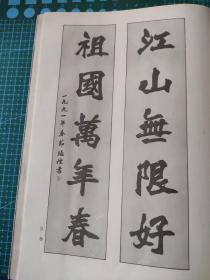 江山無限好
祖國萬年春
一九九一年春節